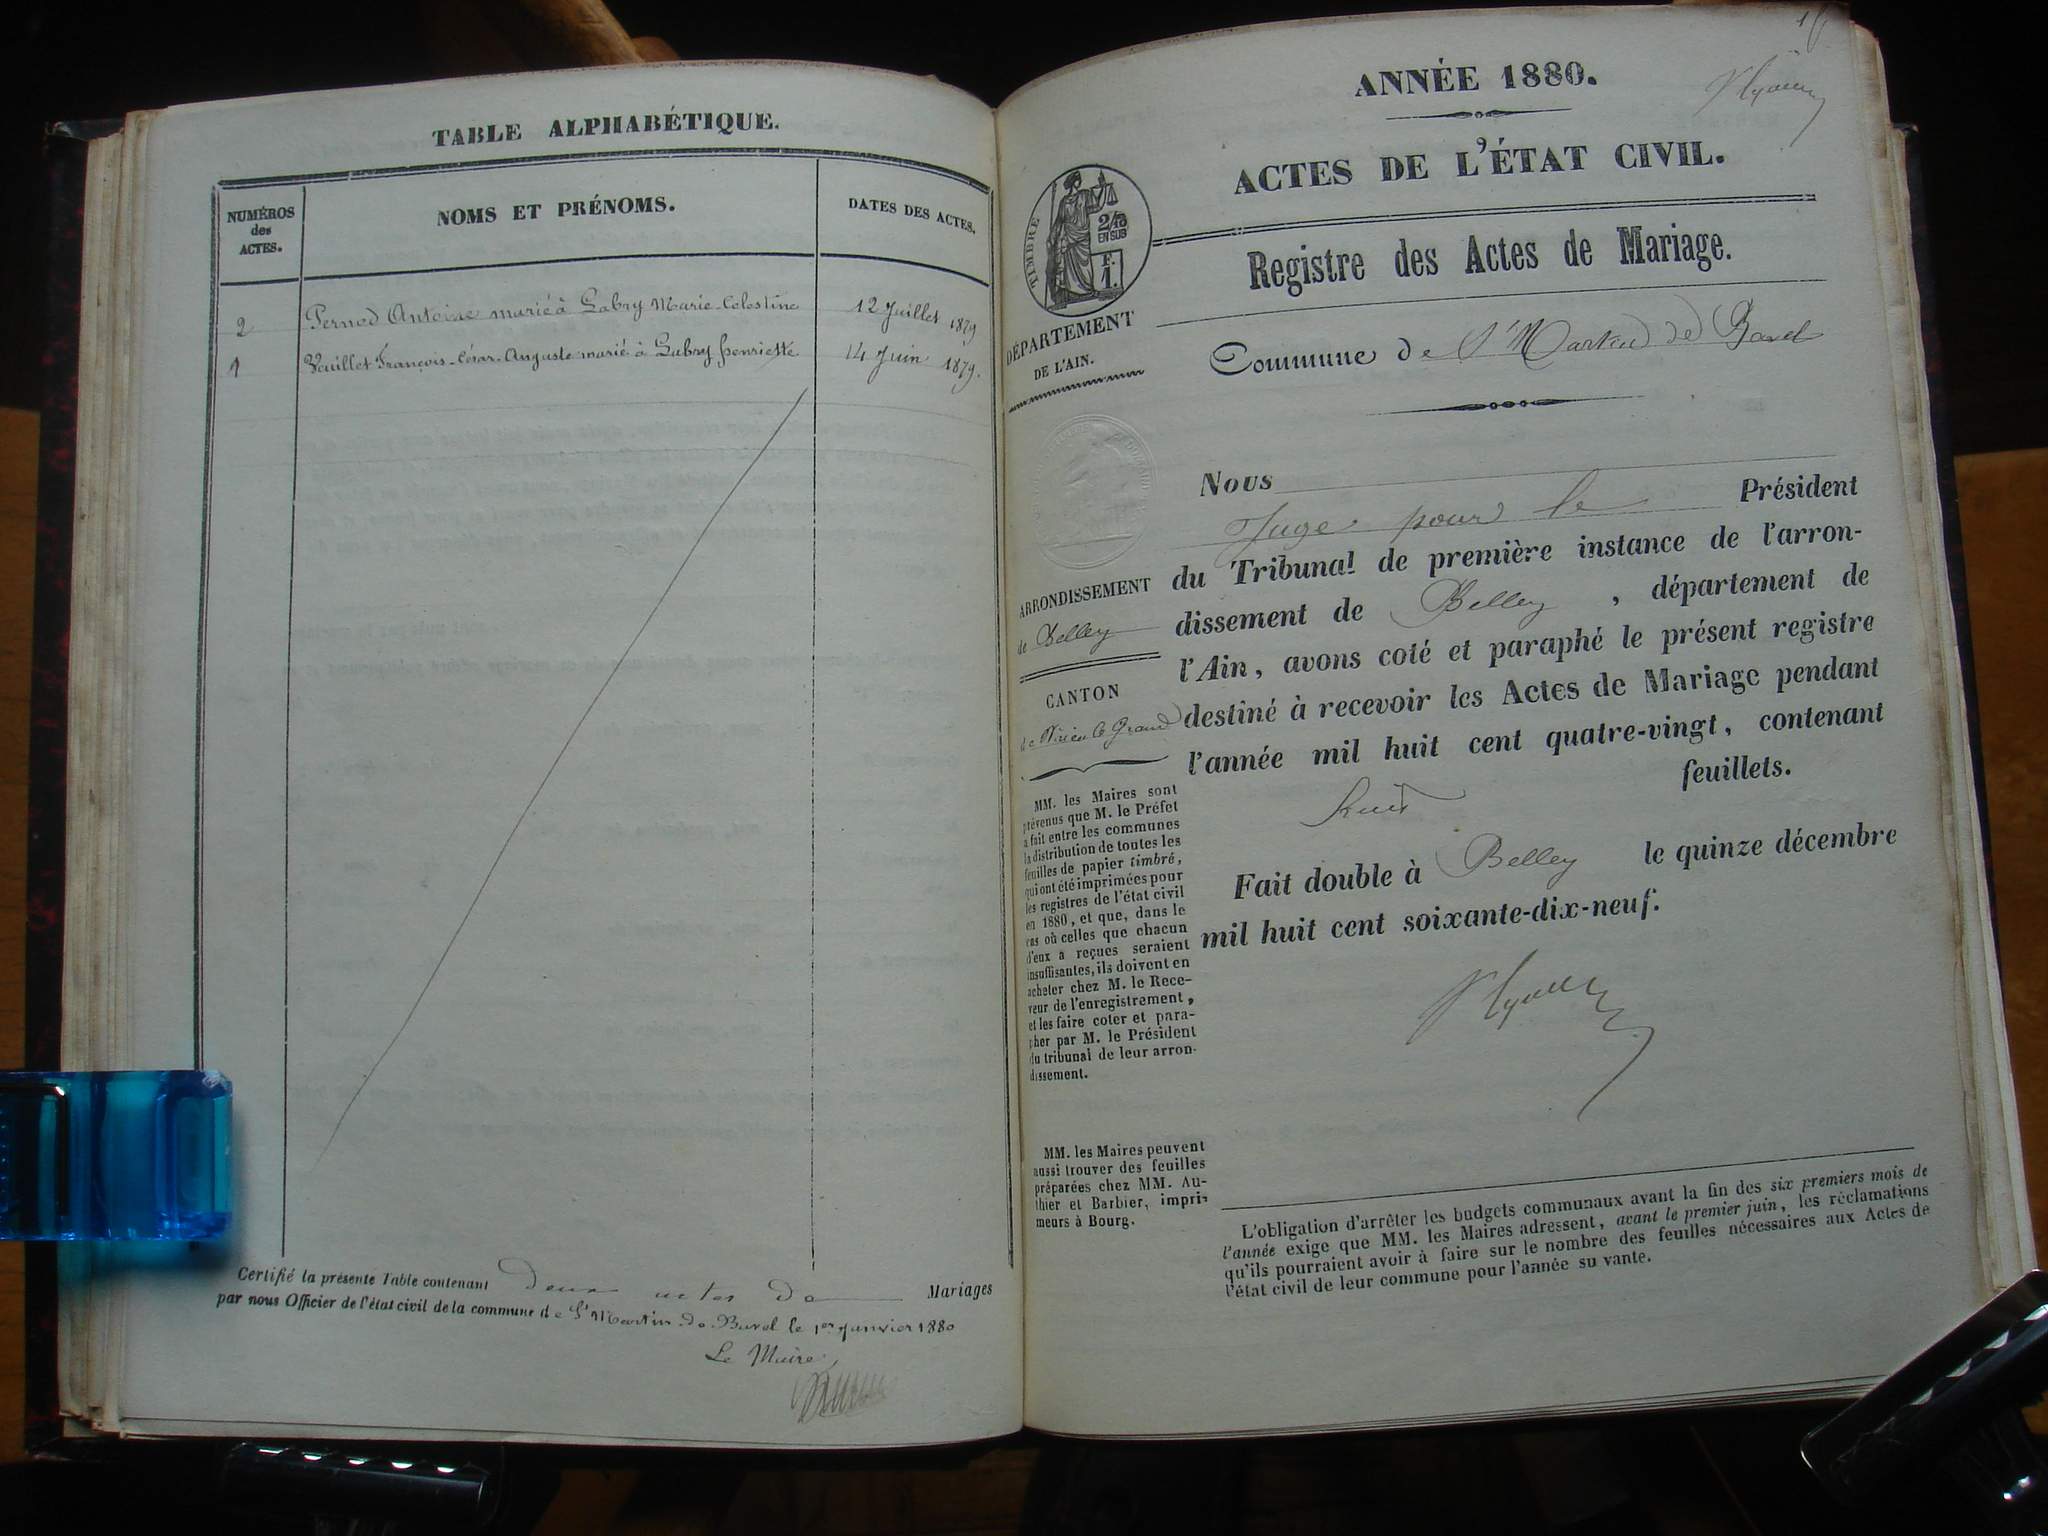 TABLE ALPHABÉTIQUE.
NUMÉROS
des
ACTES.
NOMS ET PRÉNOMS.
DATES DES ACTES.
2 Pernod Antoine marié à Labry Marie-Célestine 12 Juillet 1879
1 Vuillet François-César-Auguste marié à Labry henriette 14 Juin 1879.
Certifié la présente Table contenant deux actes de Mariages
par nous Officier de l'état civil de la commune de St Martin de Bavel le 1er Janvier 1880
Le Maire
ANNÉE 1880.
ACTES DE L'ÉTAT CIVIL.
TIMBRE
2/10
EN SUS
F.
1.
Registre des Actes de Mariage.
DÉPARTEMENT
DE L'AIN.
Commune de St Martin de Bavel
ARRONDISSEMENT
de Belley
CANTON
de Virieu le Grand
MM. les Maires sont
prévenus que M. le Préfet
a fait entre les communes
la distribution de toutes les
feuilles de papier timbré,
qui ont été imprimées pour
les registres de l'état civil
en 1880, et que, dans le
cas où celles que chacun
d'eux a reçues seraient
insuffisantes, ils doivent en
acheter chez M. le Rece-
veur de l'enregistrement,
et les faire coter et para-
pher par M. le Président
du tribunal de leur arron-
dissement.
MM. les Maires peuvent
aussi trouver des feuilles
préparées chez MM. Au-
thier et Barbier, impri-
meurs à Bourg.
Nous
Juge pour le Président
du Tribunal de première instance de l'arron-
dissement de Belley, département de
l'Ain, avons coté et paraphé le présent registre
destiné à recevoir les Actes de Mariage pendant
l'année mil huit cent quatre-vingt, contenant
huit feuillets.
Fait double à Belley le quinze décembre
mil huit cent soixante-dix-neuf.
L'obligation d'arrêter les budgets communaux avant la fin des six premiers mois de
l'année exige que MM. les Maires adressent, avant le premier juin, les réclamations
qu'ils pourraient avoir à faire sur le nombre des feuilles nécessaires aux Actes de
l'état civil de leur commune pour l'année su vante.